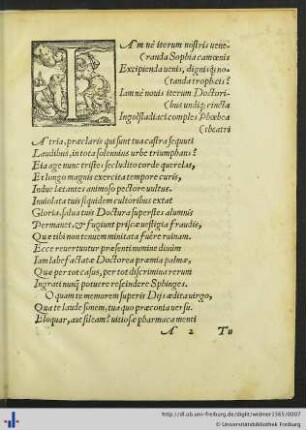 IAm nè iterum nostris vene-
randa Sophia camœnis
Excipienda venis, dignisq; no-
tanda trophæis?
Iam nè novis iterum Doctori-
bus undiq; cincta
Ingolstadiaci comples Phœbea
theatri
Atria, præclaris qui sunt tua castra sequuti
Laudibus, in tota solennius urbe triumphans?
Eia age nunc tristes secluso corde querelas,
Et longo magnis exercita tempore curis,
Indue lætantes animoso pectore vultus.
Inviolata tuis siquidem cultoribus extat
Gloria, salva tuis Doctura superstes alumnis
Permanet, & fugiunt priscæ vestigia fraudis,
Quæ tibi non tenuem minitata fuêre ruinam.
Ecce revertuntur præsenti numine divûm
Iam labefactatæ Doctorea præmia palmæ,
Quæ per tot casus, per tot discrimina rerum
Ingrati nunq̃ potuere rescindere Sphinges.
O quam te memorem superis Dijs ædita virgo,
Quæ te laude sonem, tua quo præconia versu
Eloquar, aut sileam? vitiosæ pharmaca menti
A 2 Tu
http://dl.ub.uni-freiburg.de/diglit/widmer1565/0007
© Universitätsbibliothek Freiburg